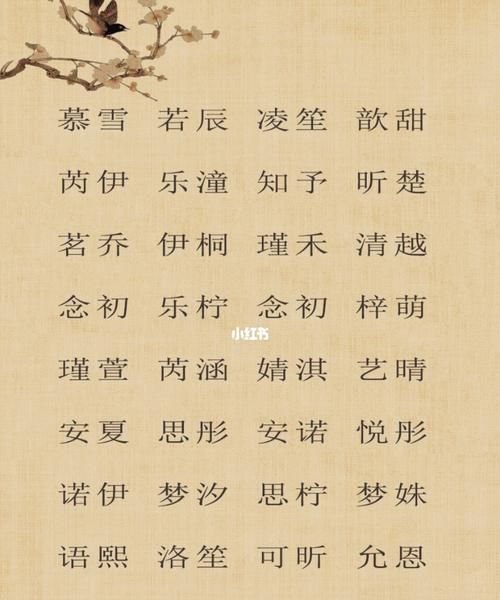 慕雪 若辰 凌笙 歆甜
芮伊 乐潼 知予 昕楚
茗乔 伊桐 瑾禾 清越
念初 乐柠 念初 梓萌
小红书
瑾萱 芮涵 婧淇 艺晴
安夏 思彤 安诺 悦彤
诺伊 梦汐 思柠 梦姝
语熙 洛笙 可昕 允恩